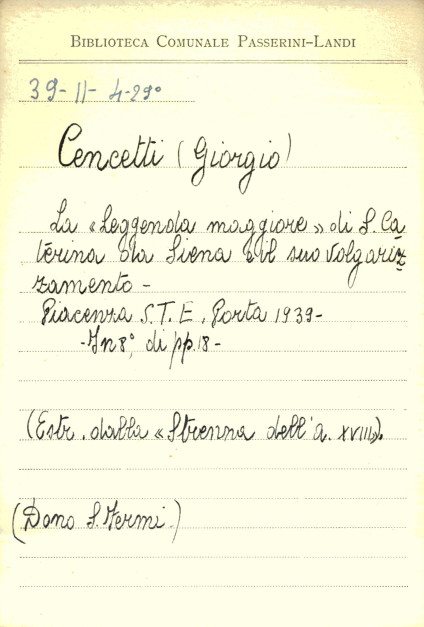 BIBLIOTECA COMUNALE PASSERINI-LANDI
39-11-4-29°
Cencetti (Giorgio)
La «Leggenda maggiore» di S. Ca=
terina da Siena e il suo volgariz=
zamento -
Piacenza S.T.E. Porta 1939-
-In 8°, di pp. 18-
(Estr. dalla «Strenna dell'a. XVIII»).
(Dono S. Fermi)